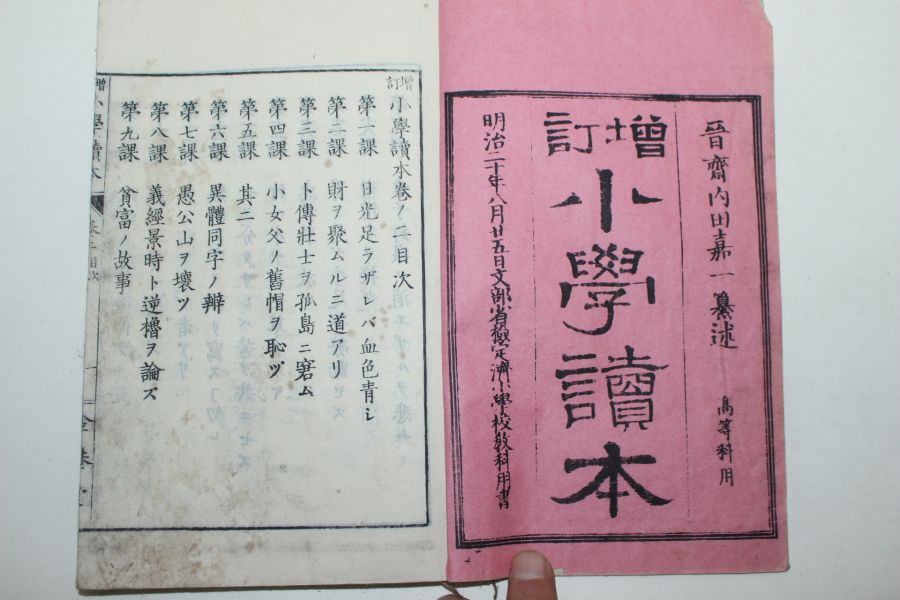 晉齋內田嘉一纂述
高等科用
增訂
小學讀本
明治二十年八月廿五日文部省檢定濟小學校教科用書
增訂小學讀本卷ノ二目次
第一課 日光足ラザレバ血色青シ
第二課 財ヲ聚ムルニ道アリ
第三課 卜傳壯士ヲ孤島ニ窘ム
第四課 小女父ノ舊帽ヲ恥ヅ
第五課 其二
第六課 異體同字ノ辨
第七課 愚公山ヲ壞ツ
第八課 義經景時ト逆櫓ヲ論ズ
第九課 貧富ノ故事
增訂小學讀本
卷二
目次
一